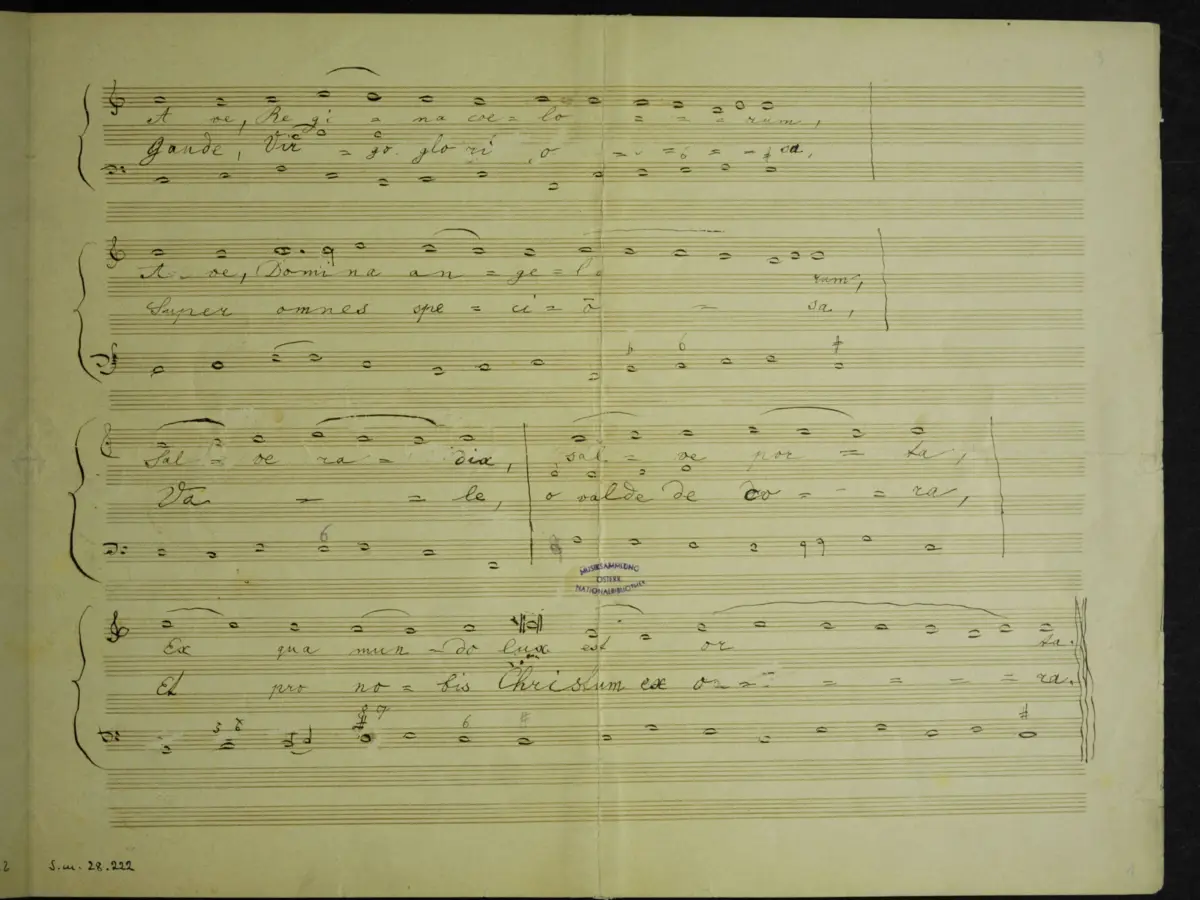 A ve, Re gi = na coe = lo = = = rum,
Gaude, Vir = go glo ri o = = = = sa,
A - ve, Domi na an = ge = l rum,
Super omnes spe = ci = o = sa,
b 6 #
Sal = ve ra = dix, sal = ve por = ta,
Va = = le, o valde de co = - = ra,
6
MUSIKSAMMLUNG
ÖSTERR.
NATIONALBIBLIOTHEK
Ex qua mun - do lux est or ta.
Et pro no = bis Christum ex o = = = = = = ra.
5 8 8 7 6 # #
S.m. 28.222